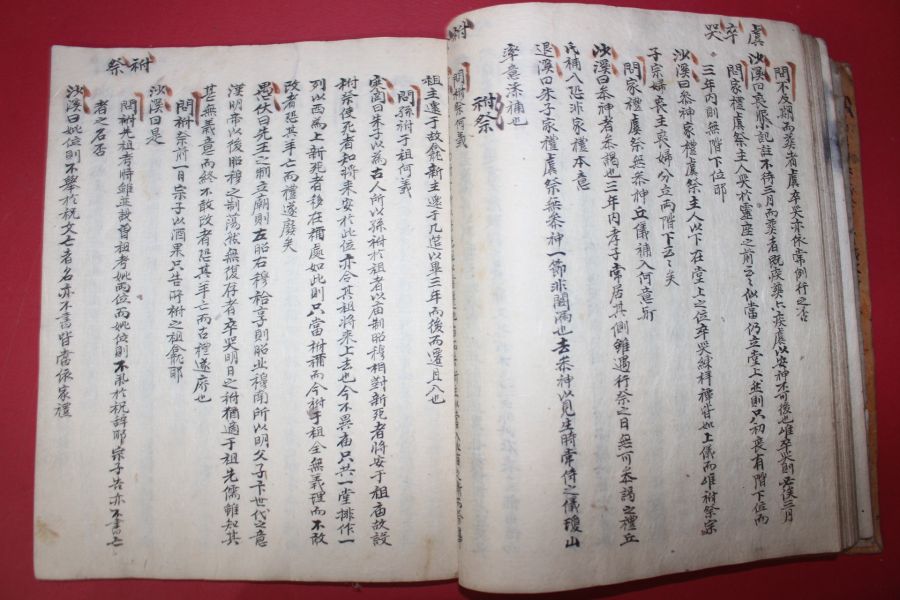 虞 卒哭
問不及期而葬者虞卒哭亦依常例行之否
沙溪曰喪服小記註不待三月而葬者旣疾葬亦疾虞以安神不可後也惟卒哭則必俟三月
問家禮虞祭主人哭於靈座之前云云似當仍立堂上然則只初喪有階下位而
三年內則無階下位耶
沙溪曰參神家禮虞祭主人以下在堂上之位卒哭練祥禫皆如上儀而惟祔祭宗
子宗婦喪主喪婦分立兩階下云云矣
問家禮虞祭無參神丘儀補入何意耶
沙溪曰參神者參謁也三年內孝子常居其側雖遇行祭之日無可參謁之禮丘
氏補入恐非家禮本意
退溪曰朱子家禮虞祭無參神一節非闕漏也去參神以見生時常侍之儀瓊山
率意添補也
祔祭
問祔祭何義
祔祭
祖主還于故龕新主還于几筵以畢三年而後而遷且入也
問孫祔于祖何義
曰朱子以爲古人所以孫祔於祖者以庙制昭穆相對新死者將安于祖庙故設
祔祭使死者知將來安於此位亦令其祖將來上去也今不異庙只共一堂排作一
列以西爲上新死者移在禰處如此則只當祔禰而今祔于祖全無義理而不敢
改者恐其羊亡而禮遂廢矣
愚伏曰先王之制立廟則左昭右穆祫享則昭北穆南所以明父子卞世代之意
漢明帝以後昭穆之制蕩然無復存者卒哭明日之祔猶適于祖先儒雖知其
甚無義意而終不敢改者恐其羊亡而古禮遂廢也
問祔祭前一日宗子以酒果只告所祔之祖龕耶
沙溪曰是
問祔先祖考時雖並設曾祖考妣兩位而妣位則不擧於祝辭耶宗子告亦不書亡
者之名否
沙溪曰妣位則不擧於祝文亡者名亦不書皆當依家禮